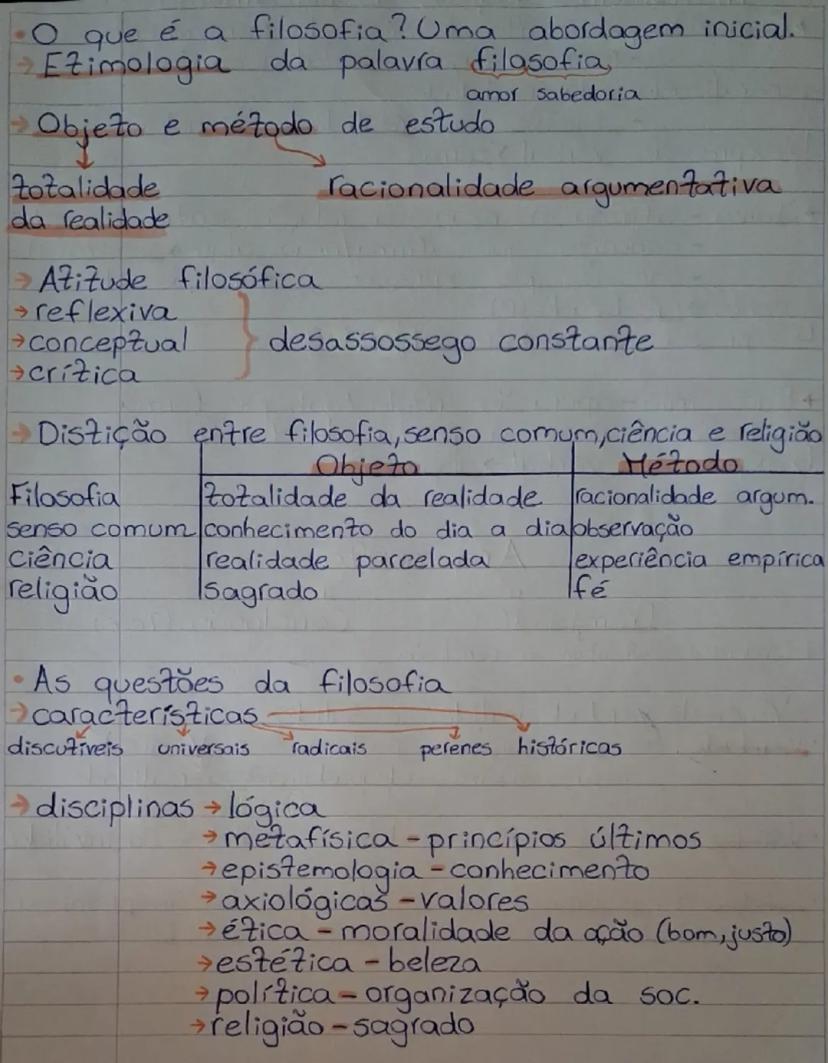 • O que é a filosofia? Uma abordagem inicial.
→ Etimologia da palavra filosofia
amor sabedoria
→ Objeto e método de estudo
totalidade racionalidade argumentativa
da realidade
→ Atitude filosófica
→ reflexiva
→ conceptual } desassossego constante
→ crítica
→ Distição entre filosofia, senso comum, ciência e religião
Objeto Método
Filosofia totalidade da realidade racionalidade argum.
senso comum conhecimento do dia a dia observação
ciência realidade parcelada experiência empírica
religião sagrado fé
• As questões da filosofia
→ características
discutíveis universais radicais perenes históricas
→ disciplinas → lógica
→ metafísica - princípios últimos
→ epistemologia - conhecimento
→ axiológicas - valores
→ ética - moralidade da ação (bom, justo)
→ estética - beleza
→ política - organização da soc.
→ religião - sagrado